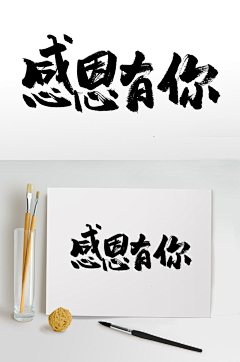 感恩有你
感恩有你